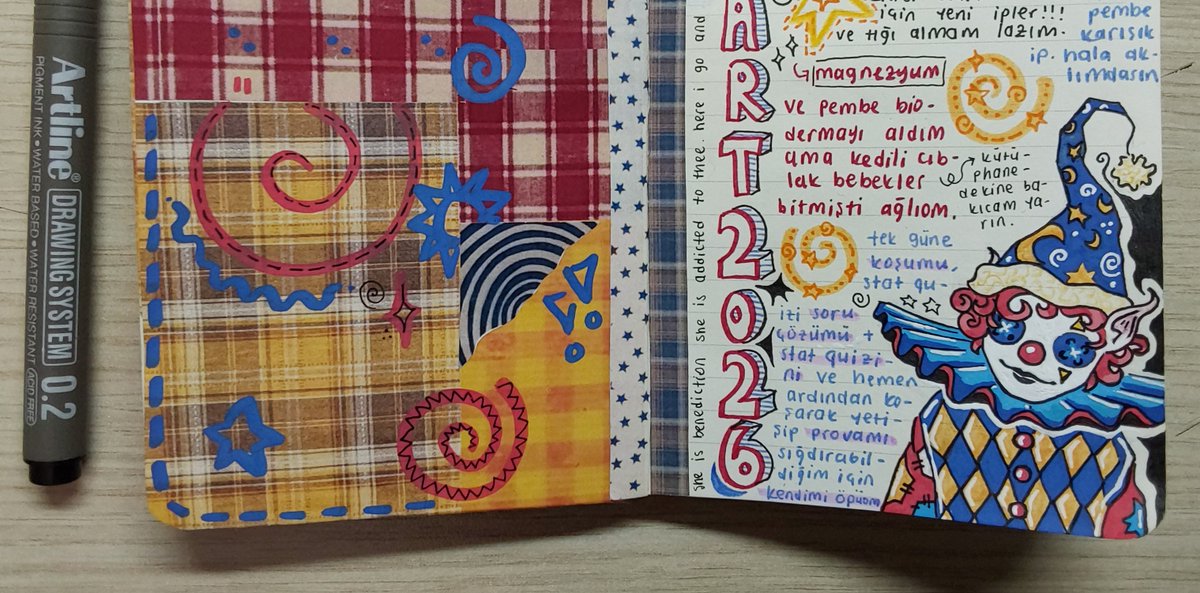 Artline®
DRAWING SYSTEM 0.2
PIGMENT INK • WATER BASED • WATER RESISTANT
ACID FREE
she is benediction she is addicted to thee. here i go and
A
R
T
2
0
2
6
için yeni ipler!!!
ve tığı almam lazım.
pembe
karışık
ip. hala ak-
lımdasın
magnezyum
ve pembe bio-
dermayı aldım
ama kedili cıb-
lak bebekler
bitmişti ağlıom.
kütü-
phane-
dekine ba-
kıcam ya-
rın.
tek güne
koşumu,
stat qu-
izi soru
çözümü +
stat quizi-
ni ve hemen
ardından ko-
şarak yeti-
şip provamı
sığdırabil-
diğim için
kendimi öpüom